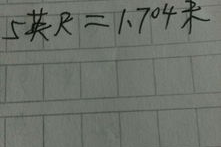 5英尺=1.704米